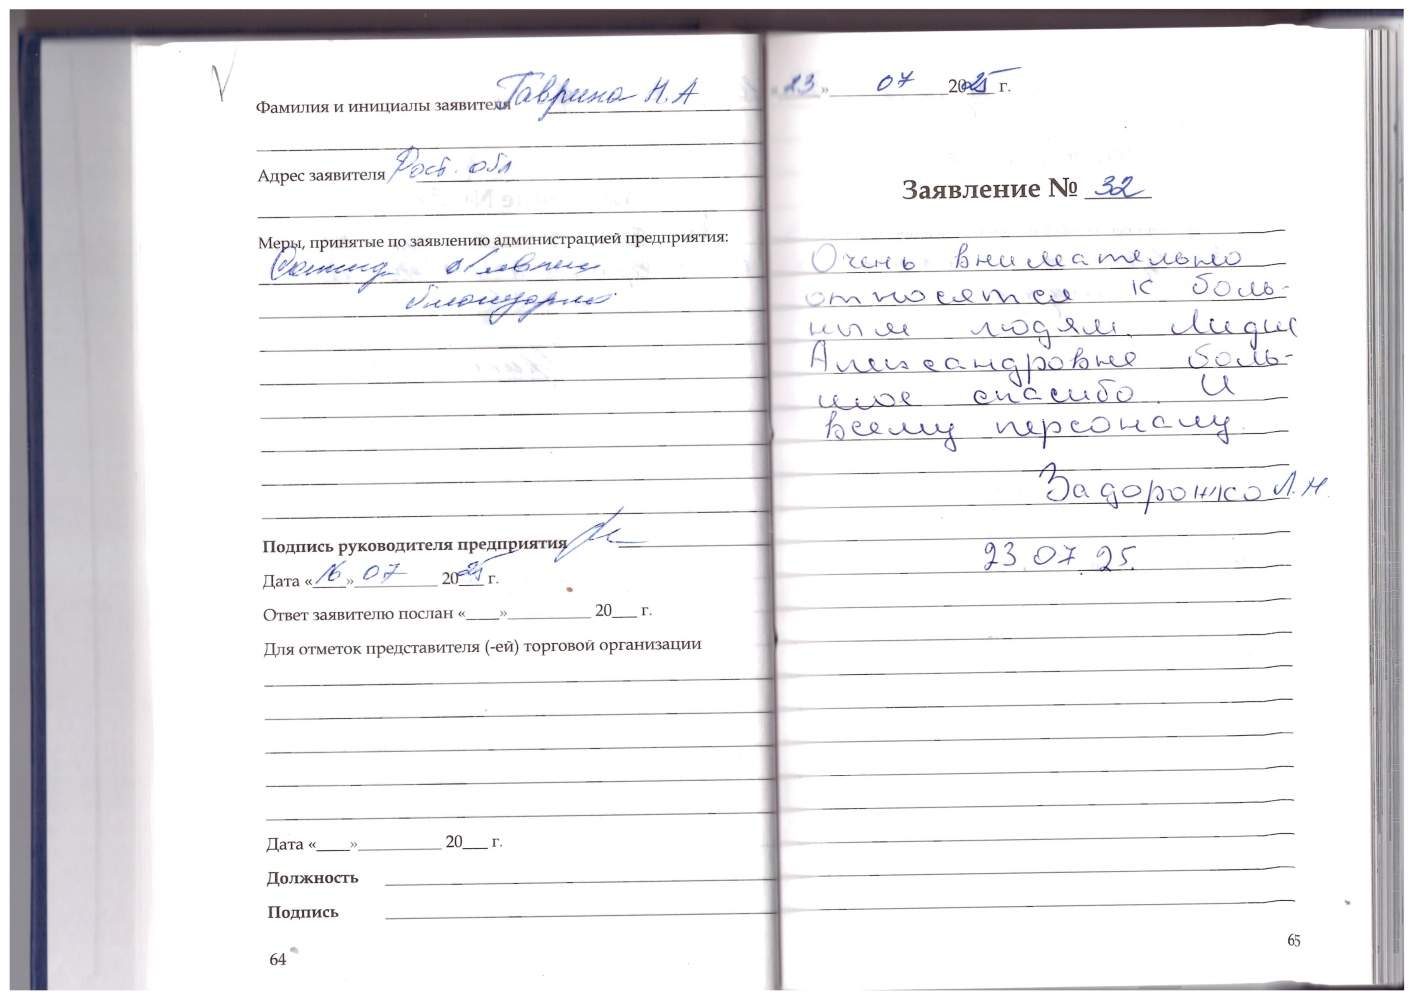 Фамилия и инициалы заявителя Гаврина Н.А
Адрес заявителя Рост. обл
Меры, принятые по заявлению администрацией предприятия:
объявлена
благодарность
Подпись руководителя предприятия
Дата «16» 07 2025 г.
Ответ заявителю послан «____»__________ 20___ г.
Для отметок представителя (-ей) торговой организации
Дата «____»__________ 20___ г.
Должность
Подпись
64
«23» 07 2025 г.
Заявление № 32
Очень внимательно
относятся к боль-
ным людям. Лидии
Александровне боль-
шое спасибо. И
всему персоналу.
Задорожко Л.Н.
23.07.25.
65